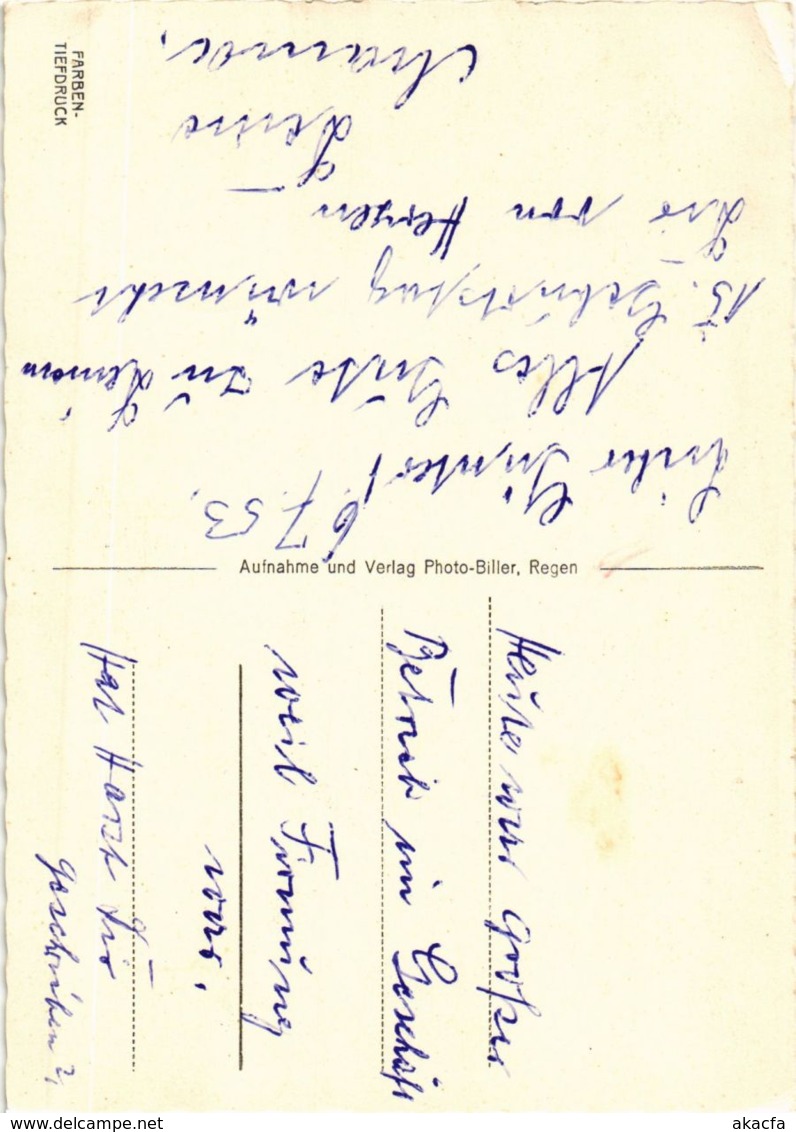 6.7.53.
Lieber Günter!
Alles Gute zu Deinem
15. Geburtstag wünscht
Dir von Herzen
Deine
Mama.
Heute war Großer
Betrieb im Geschäft
weil Firmung
war.
Hat Horst Dir
geschrieben?
Aufnahme und Verlag Photo-Biller, Regen
FARBEN-
TIEFDRUCK
akacfa
delcampe.net